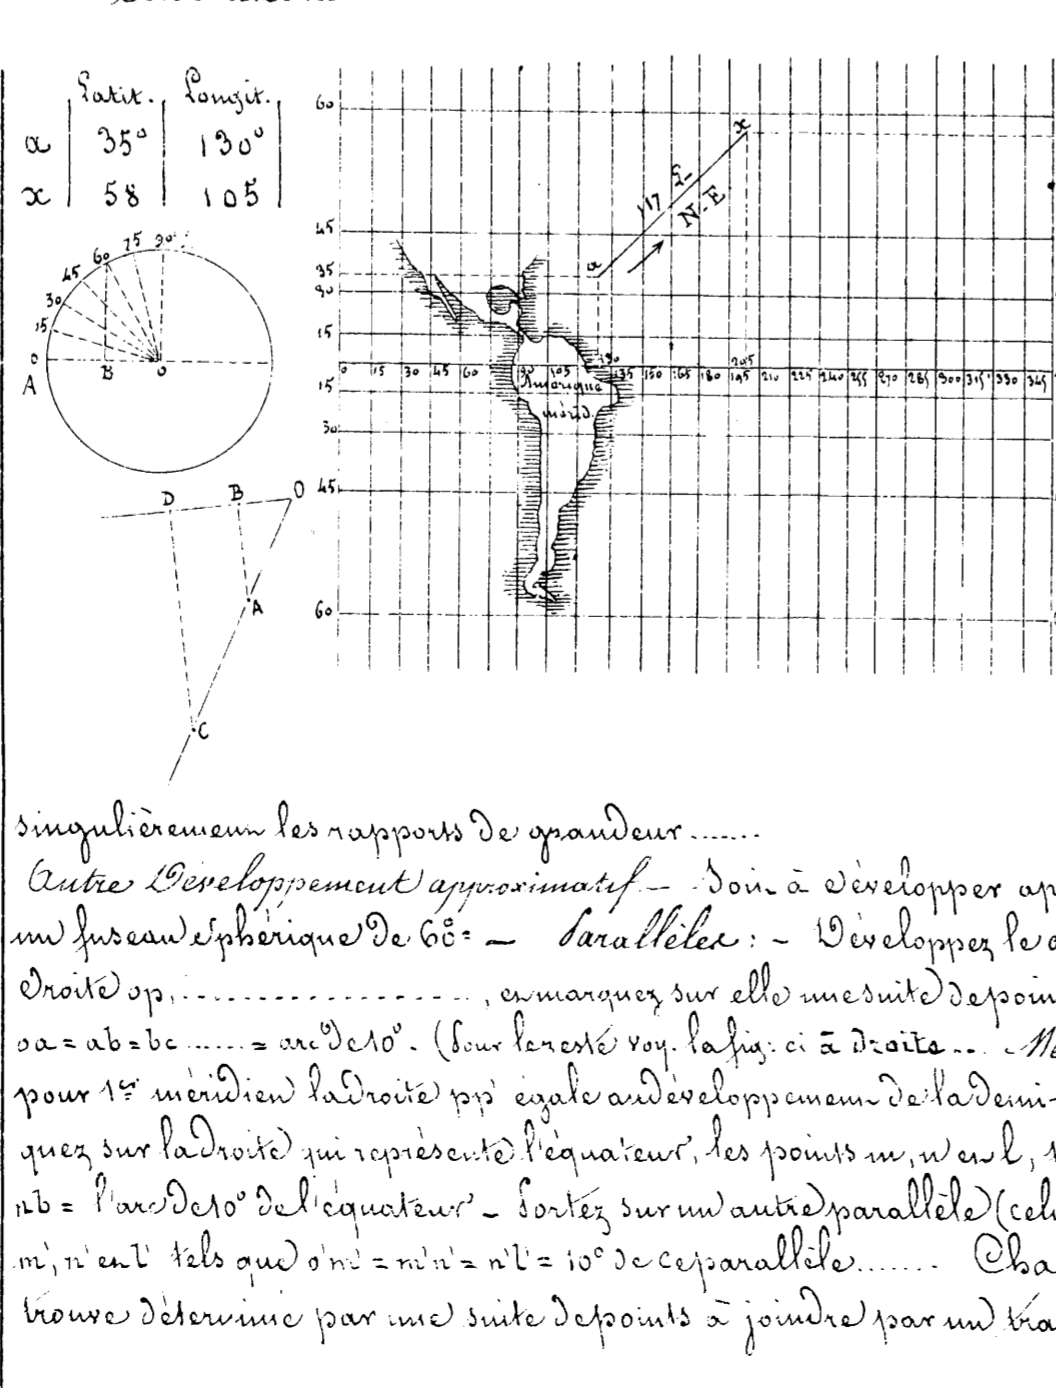 Latit. Longit.
a 35° 130°
x 58 105
0 15 30 45 60 75 90°
A B o
D B O
A
C
60
45
35
30
15
15
30
45
60
0 15 30 45 60 90 105 130 135 150 165 180 195 205 210 225 240 255 270 285 300 315 330 345
a x
117 L
N-E
Amérique
mérid.
singulièrement les rapports de grandeur.......
Autre Développement approximatif — Soit à développer ap
un fuseau sphérique de 60° — Parallèles : - Développez le
droite op, ..................., et marquez sur elle une suite de poin
oa = ab = bc ...... = arc de 10°. (Pour le reste voy. la fig: ci à droite... Mé
pour 1er méridien la droite pp' égale au développement de la demi-
quez sur la droite qui représente l'équateur, les points m, n et l,
nb = l'arc de 10° de l'équateur - Portez sur un autre parallèle (cel
m', n' et l' tels que o'm' = m'n' = n'l' = 10° de ce parallèle....... Cha
trouve déterminé par une suite de points à joindre par un tra